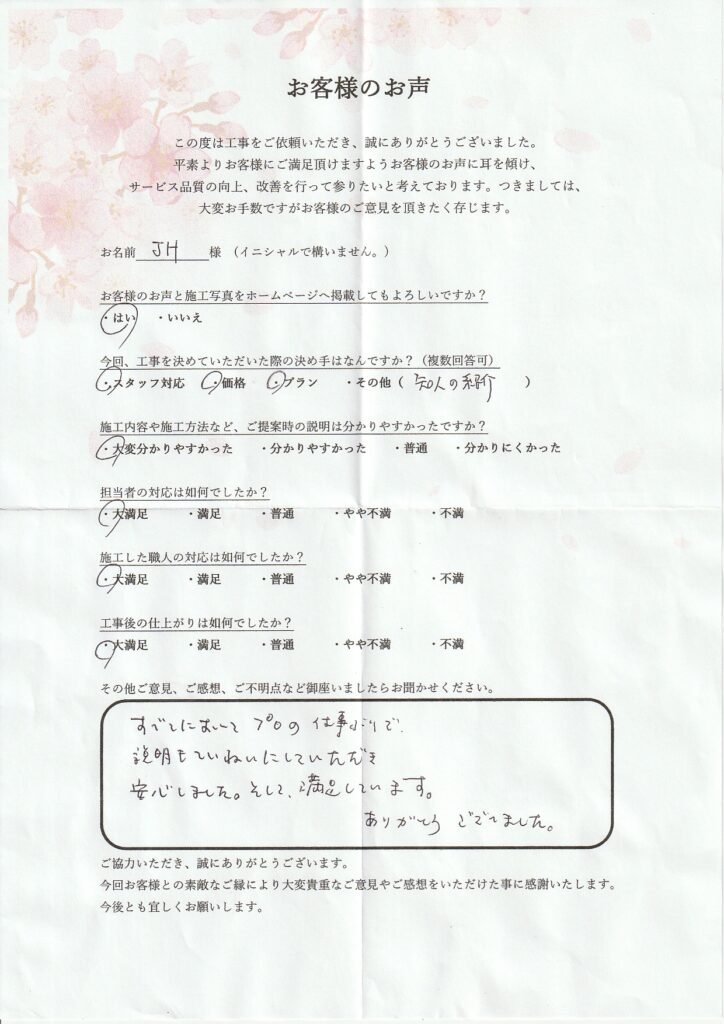 お客様のお声
この度は工事をご依頼いただき、誠にありがとうございました。
平素よりお客様にご満足頂けますようお客様のお声に耳を傾け、
サービス品質の向上、改善を行って参りたいと考えております。つきましては、
大変お手数ですがお客様のご意見を頂きたく存じます。
お名前 JH 様 （イニシャルで構いません。）
お客様のお声と施工写真をホームページへ掲載してもよろしいですか？
・はい ・いいえ
今回、工事を決めていただいた際の決め手はなんですか？（複数回答可）
・スタッフ対応 ・価格 ・プラン ・その他（ 知人の紹介 ）
施工内容や施工方法など、ご提案時の説明は分かりやすかったですか？
・大変分かりやすかった ・分かりやすかった ・普通 ・分かりにくかった
担当者の対応は如何でしたか？
・大満足 ・満足 ・普通 ・やや不満 ・不満
施工した職人の対応は如何でしたか？
・大満足 ・満足 ・普通 ・やや不満 ・不満
工事後の仕上がりは如何でしたか？
・大満足 ・満足 ・普通 ・やや不満 ・不満
その他ご意見、ご感想、ご不明点など御座いましたらお聞かせください。
すべてにおいて プロの 仕事ぶりで、
説明もていねいにしていただき
安心しました。そして、満足しています。
ありがとう ございました。
ご協力いただき、誠にありがとうございます。
今回お客様との素敵なご縁により大変貴重なご意見やご感想をいただけた事に感謝いたします。
今後とも宜しくお願いします。